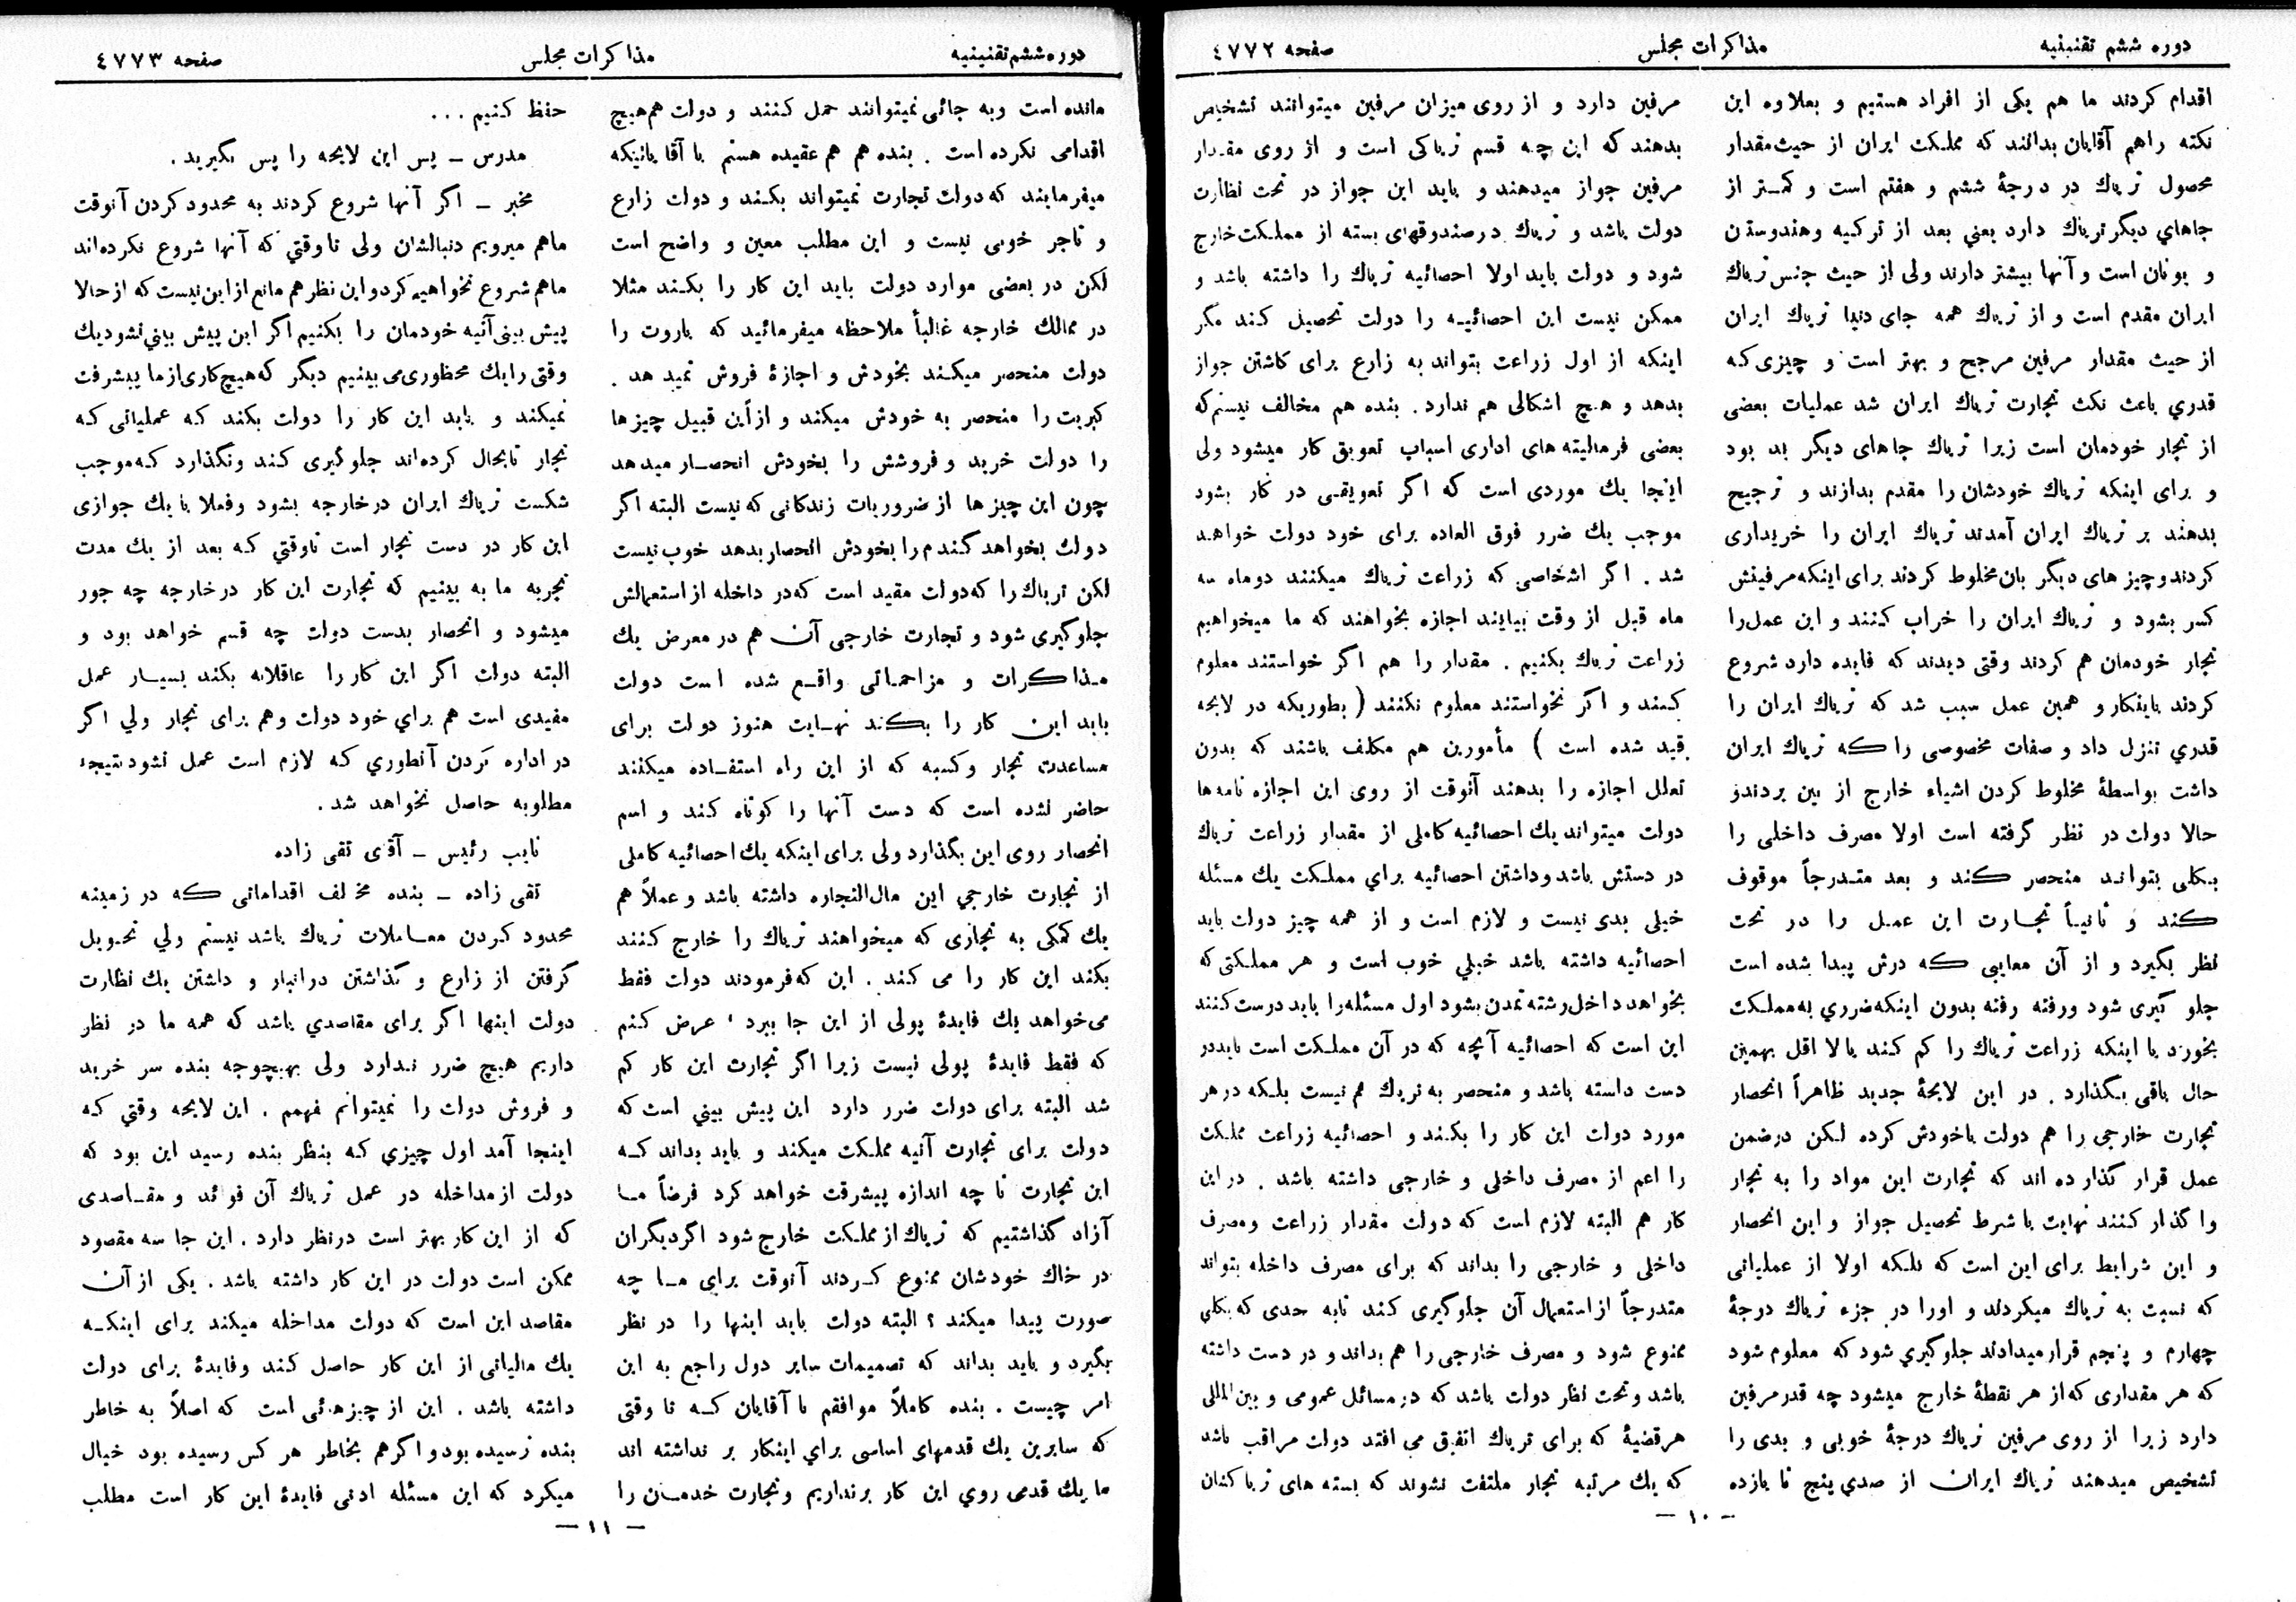 دوره ششم تقنینیه
مذاکرات مجلس
صفحه ٤٧٧٢
اقدام کردند ما هم یکی از افراد هستیم و بعلاوه این
نکته راهم آقایان بدانند که مملکت ایران از حیث مقدار
محصول تریاك در درجهٔ ششم و هفتم است و کمتر از
جاهای دیگر تریاك دارد یعنی بعد از ترکیه وهندوستن
و یونان است و آنها بیشتر دارند ولی از حیث جنس تریاك
ایران مقدم است و از تریاك همه جای دنیا تریاك ایران
از حیث مقدار مرفین مرجح و بهتر است و چیزی که
قدري باعث نکث تجارت تریاك ایران شد عملیات بعضی
از تجار خودمان است زیرا تریاك جاهای دیگر بد بود
و برای اینکه تریاك خودشان را مقدم بدازند و ترجیح
بدهند بر تریاك ایران آمدند تریاك ایران را خریداری
کردند وچیز های دیگر بان مخلوط کردند برای اینکه مرفینش
کسر بشود و تریاك ایران را خراب کنند و این عمل را
تجار خودمان هم کردند وقتی دیدند که فایده دارد شروع
کردند باینکار و همین عمل سبب شد که تریاك ایران را
قدري تنزل داد و صفات مخصوصی را که تریاك ایران
داشت بواسطهٔ مخلوط کردن اشیاء خارج از بین بردند و
حالا دولت در نظر گرفته است اولا مصرف داخلی را
بکلی بتواند منحصر کند و بعد متدرجاً موقوف
کند و ثانیاً تجارت این عمل را در تحت
نظر بگیرد و از آن معایبی که درش پیدا شده است
جلو گیری شود ورفته رفته بدون اینکه ضرری به مملکت
بخورد یا اینکه زراعت تریاك را کم کند یا لا اقل بهمین
حال باقی بگذارد . در این لایحهٔ جدید ظاهراً انحصار
تجارت خارجی را هم دولت باخودش کرده لکن درضمن
عمل قرار گذارده اند که تجارت این مواد را به تجار
وا گذار کنند نهایت با شرط تحصیل جواز و این انحصار
و این شرایط برای این است که بلکه اولا از عملیاتی
که نسبت به تریاك میکردند و اورا در جزء تریاك درجهٔ
چهارم و پنجم قرار میدادند جلوگیري شود که معلوم شود
که هر مقداری که از هر نقطهٔ خارج میشود چه قدر مرفین
دارد زیرا از روی مرفین تریاك درجهٔ خوبی و بدی را
تشخیص میدهند تریاك ایران از صدي پنج تا یازده
مرفین دارد و از روی میزان مرفین میتوانند تشخیص
بدهند که این چه قسم تریاکی است و از روی مقدار
مرفین جواز میدهند و باید این جواز در تحت نظارت
دولت باشد و تریاك درصندوقهای بسته از مملکت خارج
شود و دولت باید اولا احصائیه تریاك را داشته باشد و
ممکن نیست این احصائیه را دولت تحصیل کند مگر
اینکه از اول زراعت بتواند به زارع برای کاشتن جواز
بدهد و هیچ اشکالی هم ندارد. بنده هم مخالف نیستم که
بعضی فرمالیته های اداری اسباب تعویق کار میشود ولی
اینجا یك موردی است که اگر تعویقی در کار بشود
موجب یك ضرر فوق العاده برای خود دولت خواهد
شد . اگر اشخاصی که زراعت تریاك میکنند دوماه سه
ماه قبل از وقت بیایند اجازه بخواهند که ما میخواهیم
زراعت تریاك بکنیم . مقدار را هم اگر خواستند معلوم
کنند و اگر نخواستند معلوم نکنند ( بطوریکه در لایحه
قید شده است ) مأمورین هم مکلف باشند که بدون
تعلل اجازه را بدهند آنوقت از روی این اجازه نامه‌ها
دولت میتواند یك احصائیه کاملی از مقدار زراعت تریاك
در دستش باشد وداشتن احصائیه براي مملکت یك مسئله
خیلی بدی نیست و لازم است و از همه چیز دولت باید
احصائیه داشته باشد خیلي خوب است و هر مملکتی که
بخواهد داخل رشته تمدن بشود اول مسئله را باید درست کنند
این است که احصائیه آنچه که در آن مملکت است باید در
دست داسته باشد و منحصر به تریاك هم نیست بلکه در هر
مورد دولت این کار را بکند و احصائیه زراعت مملکت
را اعم از مصرف داخلی و خارجی داشته باشد . در این
کار هم البته لازم است که دولت مقدار زراعت و مصرف
داخلی و خارجی را بداند که برای مصرف داخله بتواند
متدرجاً از استعمال آن جلوگیری کند تابه حدی که بکلی
ممنوع شود و مصرف خارجی را هم بداند و در دست داشته
باشد وتحت نظر دولت باشد که در مسائل عمومی و بین المللی
هرقضیهٔ که برای تریاك اتفاق می افتد دولت مراقب باشد
که یك مرتبه تجار ملتفت نشوند که بسته های تریاکشان
— ١٠ —
دوره ششم تقنینیه
مذاکرات مجلس
صفحه ٤٧٧٣
مانده است وبه جائی نمیتوانند حمل کنند و دولت هم هیچ
اقدامی نکرده است . بنده هم هم عقیده هستم با آقایانیکه
میفرمایند که دولت تجارت نمیتواند بکند و دولت زارع
و تاجر خوبی نیست و این مطلب معین و واضح است
لکن در بعضی موارد دولت باید این کار را بکند مثلا
در ممالك خارجه غالباً ملاحظه میفرمائید که باروت را
دولت منحصر میکند بخودش و اجازهٔ فروش نمیدهد .
کبریت را منحصر به خودش میکند و از این قبیل چیزها
را دولت خرید و فروشش را بخودش انحصار میدهد
چون این چیز ها از ضروریات زندکانی که نیست البته اگر
دولت بخواهد گندم را بخودش انحصار بدهد خوب نیست
لکن تریاك را که دولت مقید است که در داخله از استعمالش
جلوگیری شود و تجارت خارجی آن هم در معرض یك
مذاکرات و مزاحماتی واقع شده است دولت
باید این کار را بکند نهایت هنوز دولت برای
مساعدت تجار وکسبه که از این راه استفاده میکنند
حاضر نشده است که دست آنها را کوتاه کند و اسم
انحصار روی این بگذارد ولی برای اینکه یك احصائیه کاملی
از تجارت خارجي این مال التجاره داشته باشد و عملاً هم
یك کمکی به تجاری که میخواهند تریاك را خارج کنند
بکند این کار را می کند . این که فرمودند دولت فقط
می‌خواهد یك فایدهٔ پولی از این جا ببرد ، عرض کنم
که فقط فایدهٔ پولی نیست زیرا اگر تجارت این کار کم
شد البته برای دولت ضرر دارد این پیش بیني است که
دولت برای تجارت آتیه مملکت میکند و باید بداند که
این تجارت تا چه اندازه پیشرقت خواهد کرد فرضاً ما
آزاد گذاشتیم که تریاك از مملکت خارج شود اگر دیگران
در خاك خودشان ممنوع کردند آنوقت برای ما چه
صورت پیدا میکند ؟ البته دولت باید اینها را در نظر
بگیرد و باید بداند که تصمیمات سایر دول راجع به این
امر چیست . بنده کاملاً موافقم با آقایان که تا وقتی
که سایرین یك قدمهای اساسی براي اینکار بر نداشته اند
ما یك قدمی روي این کار برنداریم وتجارت خدمان را
حفظ کنیم ...
مدرس ــ پس این لایحه را پس بگیرید .
مخبر ــ اگر آنها شروع کردند به محدود کردن آنوقت
ماهم میرویم دنبالشان ولی تا وقتي که آنها شروع نکرده‌اند
ماهم شروع نخواهیم کرد و این نظر هم مانع از این نیست که از حالا
پیش بینی آتیه خودمان را بکنیم اگر این پیش بیني نشود یك
وقتی را یك محظوری می بینیم دیگر که هیچ کاری از ما پیشرفت
نمیکند و باید این کار را دولت بکند که عملیاتی که
تجار تابحال کرده‌اند جلوگیری کند ونگذارد که موجب
شکست تریاك ایران در خارجه بشود وفعلا با یك جوازی
این کار در دست تجار است تاوقتي که بعد از یك مدت
تجربه ما به بینیم که تجارت این کار در خارجه چه جور
میشود و انحصار بدست دولت چه قسم خواهد بود و
البته دولت اگر این کار را عاقلانه بکند بسیار عمل
مفیدی است هم براي خود دولت وهم برای تجار ولي اگر
در اداره کردن آنطوري که لازم است عمل نشود نتیجه
مطلوبه حاصل نخواهد شد .
نایب رئیس ــ آقای تقی زاده
تقی زاده ــ بنده مخالف اقداماتی که در زمینه
محدود کردن معاملات تریاك باشد نیستم ولي تحویل
گرفتن از زارع و گذاشتن در انبار و داشتن یك نظارت
دولت اینها اگر برای مقاصدي باشد که همه ما در نظر
داریم هیچ ضرر ندارد ولی بهیچوجه بنده سر خرید
و فروش دولت را نمیتوانم فهمم . این لایحه وقتي که
اینجا آمد اول چیزي که بنظر بنده رسید این بود که
دولت از مداخله در عمل تریاك آن فوائد و مقاصدی
که از این کار بهتر است درنظر دارد . این جا سه مقصود
ممکن است دولت در این کار داشته باشد . یکی از آن
مقاصد این است که دولت مداخله میکند برای اینکه
یك مالیاتی از این کار حاصل کند وفایدهٔ برای دولت
داشته باشد . این از چیزهائی است که اصلاً به خاطر
بنده نرسیده بود و اگر هم بخاطر هر کس رسیده بود خیال
میکرد که این مسئله ادنی فایدهٔ این کار است مطلب
— ١١ —